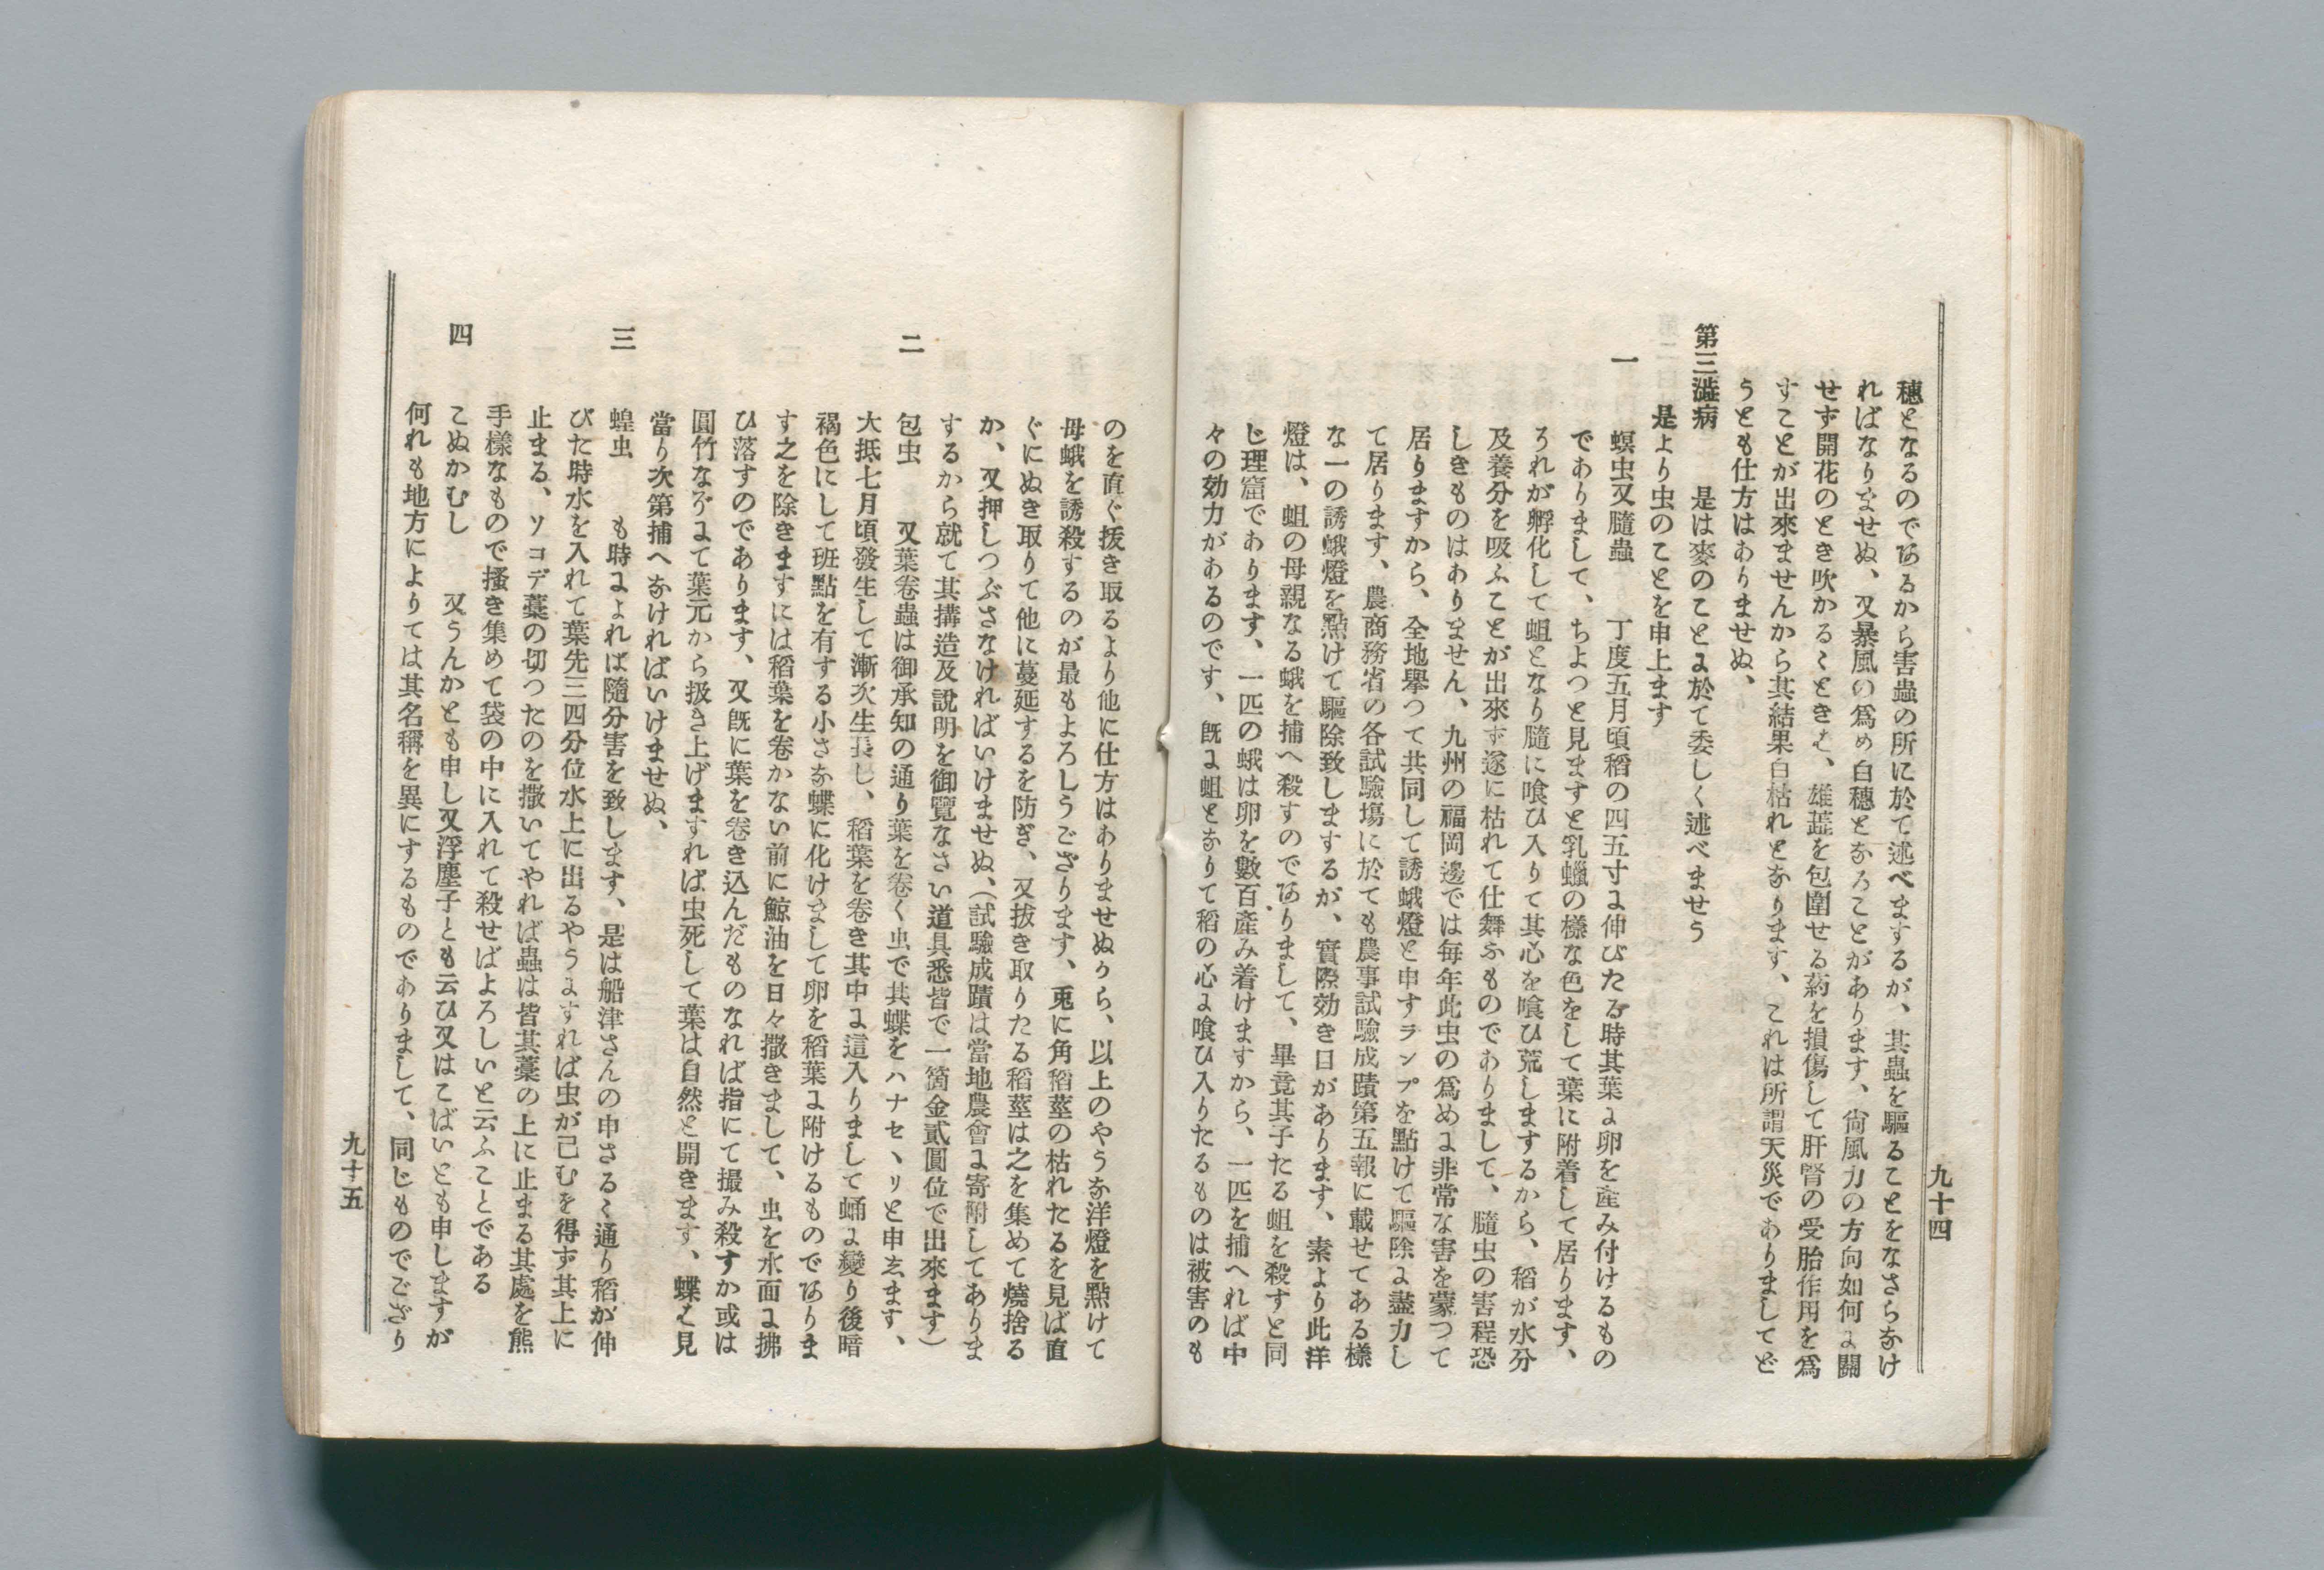 九十四
穗となるのであるから害蟲の所に於て述べまするが、其蟲を驅ることをなさらなけ
ればなりませぬ、又暴風の爲め白穗となることがあります、尙風力の方向如何に關
せず開花のとき吹かるゝときは、雄蕋を包圍せる葯を損傷して肝腎の受胎作用を爲
すことが出來ませんから其結果白枯れとなります、これは所謂天災でありましてど
うとも仕方はありませぬ、
第三澁病　是は麥のことに於て委しく述べませう
是より虫のことを申上ます
一　螟虫又髓蟲　丁度五月頃稻の四五寸に伸びたる時其葉に卵を産み付けるもの
でありまして、ちよつと見ますと乳蠟の樣な色をして葉に附着して居ります、
それが孵化して蛆となり髓に喰ひ入りて其心を喰ひ荒しまするから、稻が水分
及養分を吸ふことが出來ず遂に枯れて仕舞ふものでありまして、髓虫の害程恐
しきものはありません、九州の福岡邊では每年此虫の爲めに非常な害を蒙つて
居りますから、全地擧つて共同して誘蛾燈と申すランプを點けて驅除に盡力し
て居ります、農商務省の各試驗塲に於ても農事試驗成蹟第五報に載せてある樣
な一の誘蛾燈を點けて驅除致しまするが、實際効き日があります、素より此洋
燈は、蛆の母親なる蛾を捕へ殺すのでありまして、畢竟其子たる蛆を殺すと同
じ理窟であります、一匹の蛾は卵を數百產み着けますから、一匹を捕へれば中
々の効力があるのです、既に蛆となりて稻の心に喰ひ入りたるものは被害のも
のを直ぐ拔き取るより他に仕方はありませぬから、以上のやうな洋燈を點けて
母蛾を誘殺するのが最もよろしうござります、兎に角稻莖の枯れたるを見ば直
ぐにぬき取りて他に蔓延するを防ぎ、又拔き取りたる稻莖は之を集めて燒捨る
か、又押しつぶさなければいけませぬ、（試驗成蹟は當地農會に寄附してありま
するから就て其搆造及說明を御覽なさい道具悉皆で一箇金貳圓位で出來ます）
二　包虫　又葉卷蟲は御承知の通り葉を卷く虫で其蝶をハナセヽリと申ゑます、
大抵七月頃發生して漸次生長し、稻葉を卷き其中に這入りまして蛹に變り後暗
褐色にして班點を有する小さな蝶に化けまして卵を稻葉に附けるものでありま
す之を除きますには稻葉を卷かない前に鯨油を日々撒きまして、虫を水面に拂
ひ落すのであります、又既に葉を卷き込んだものなれば指にて撮み殺すか或は
圓竹などにて葉元から扱き上げますれば虫死して葉は自然と開きます、蝶は見
當り次第捕へなければいけませぬ、
三　蝗虫　も時によれば隨分害を致します、是は船津さんの申さるゝ通り稻が伸
びた時水を入れて葉先三四分位水上に出るやうにすれば虫が己むを得ず其上に
止まる、ソコデ藁の切つたのを撒いてやれば蟲は皆其藁の上に止まる其處を熊
手樣なもので搔き集めて袋の中に入れて殺せばよろしいと云ふことである
四　こぬかむし　又うんかとも申し又浮塵子とも云ひ又はこばいとも申しますが
何れも地方によりては其名稱を異にするものでありまして、同じものでござり
九十五